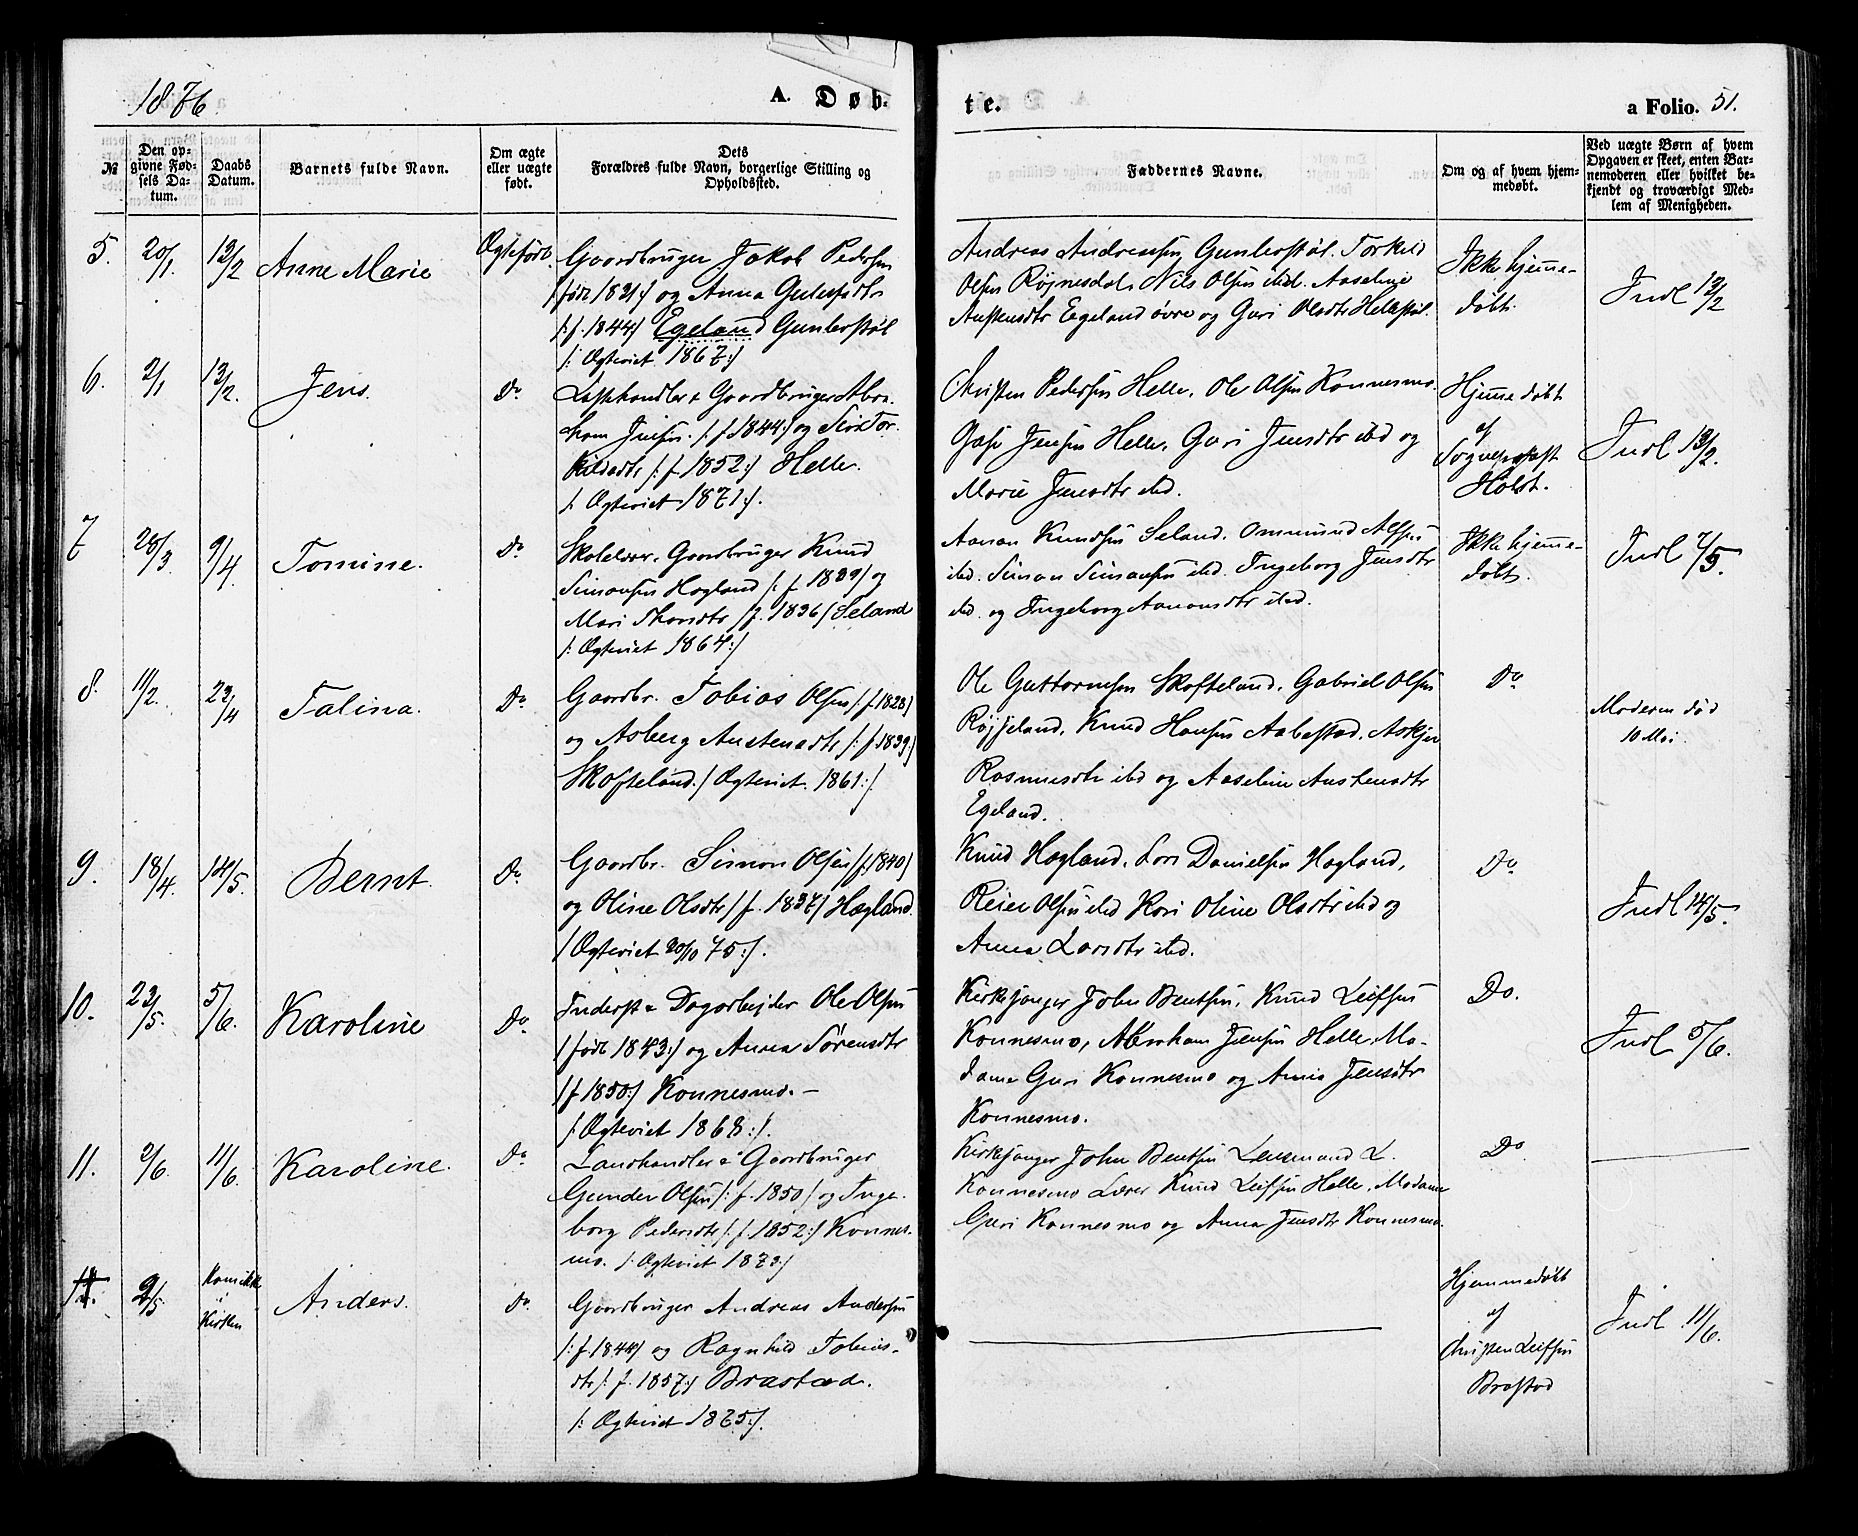 1876.
A. Døb-
te.
a Folio. 51.
№
Den opgivne Fødsels Datum.
Daabs Datum.
Barnets fulde Navn.
Om ægte eller uægte født.
Dets Forældres fulde Navn, borgerlige Stilling og Opholdssted.
Faddernes Navne.
Om og af hvem hjemmedøbt.
Ved uægte Børn af hvem Opgaven er skeet, enten Barnemoderen eller hvilket bekjendt og troværdigt Medlem af Menigheden.
5. 20/1. 13/2 Anne Marie Ægtefødt.
Gaardbruger Jakob Pedersen
/: født 1821:/ og Anna
/: f. 1844/ Egeland Gunlerstøl
/: Ægteviet 1867:/
Andreas Andreassen Gunlerstøl. Torkild
Olsen Røjnesdal. Nils Olsen ibd. Aaseline
Austensdtr Egeland øvre og Guri Olsdtr
Ikke hjemme-
døbt.
Indl 13/2
6. 2/1 13/2. Jens. Do
Gaardbruger Abra-
ham Jensen. /: f 1844:/ og Tor-
kildsdtr /: f. 1852:/ Helle.
/: Ægteviet 1871:/.
Christen Pedersen Helle. Ole Olsen Konnesmo.
Jensen Helle, Guri Jensdtr ibd og
Marie Jensdtr ibd.
Hjemmedøbt
af
Sogneprest
Holst.
Indl 13/2.
7 28/3. 9/4. Tomine. Do
Skolelærer, Gaardbruger Knud
Simonsen Hægland /: f. 1839/ og
Mari /f. 1836/ Seland
/: Ægteviet 1864:/
Aanon Knudsen Seland. Ommund
ibd. Simon Simonsen ibd. Ingeborg Jensdtr
ibd. og Ingeborg Aanonsdtr ibd.
Ikke hjemme-
døbt.
Indl 7/5.
8. 11/2. 23/4 Talina. Do
Gaardbr. Tobias Olsen /: f. 1828/
og Asberg Austensdtr /: f. 1839:/
Skofteland. / Ægteviet. 1861:/.
Ole Guttormsen Skofteland. Gabriel Olsen
Knud Hansen Aabestad. Askjer
Rasmusdtr ibd og Aaseline Austensdtr
Egeland.
Do
Moderen død
10 Mai.
9. 18/4. 14/5. Bernt. Do
Gaardbr. Simon Olsen /f. 1840/
og Oline Olsdtr /f. 1837/ Hægland.
/ Ægteviet 20/10 75:/.
Knud Hægland. Lars Danielsen Hægland,
Reier Olsen ibd Kari Oline Olsdtr ibd og
Anna Larsdtr ibd.
Do
Indl 14/5.
10. 23/5. 5/6. Karoline Do
Inderst & Dagarbejder Ole Olsen
/ født 1843:/ og Anna Sørensdtr
/f 1850:/ Konnesmo. –
/: Ægteviet 1868:/.
Kirkesanger John Bentsen, Knud Leifsen
Konnesmo, Abraham Jensen Helle, Ma-
dame Guri Konnesmo og Anna Jensdtr
Konnesmo.
Do.
Indl 5/6.
11. 2/6. 11/6. Karoline. Do
Landhandler & Gaardbruger
Gunder Olsen /: f. 1850/ og Inge-
borg Pedersdtr /: f. 1852:/ Konnes-
mo. /: Ægteviet 1873:/
Kirkesanger John Bentsen Lensmand L.
Konnesmo Lærer Knud Leifsen Helle, Madame
Guri Konnesmo og Anna Jensdtr Konnesmo.
Do
2/5. Kom ikke
i
Kirken
Anders. Do
Gaardbruger Andreas Andersen
/: f. 1844/ og Ragnhild Tobias-
dtr /: f. 1857:/ Brastad.
/: Ægteviet 1875:/.
Hjemmedøbt
af
Christen Leifsen
Brastad
Indl 11/6.